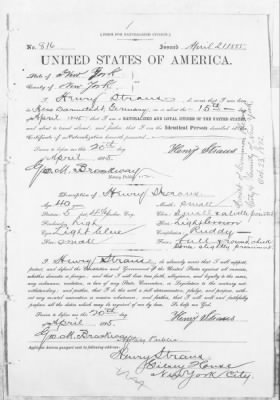 [FORM FOR NATURALIZED CITIZEN.]
No. 816 Issued April 21 1885
UNITED STATES OF AMERICA.
State of New York
County of New York
I Henry Straus, do swear that I was born
in Hesse Darmstadt, Germany on or about the 15th day
of April 1845; that I am a NATURALIZED AND LOYAL CITIZEN OF THE UNITED STATES,
and about to travel abroad; and further, that I am the Identical Person described in the
Certificate of Naturalization herewith presented
Sworn to before me this 20th day
of April 1885
Henry Straus
Geo. M. Brockway
Notary Public.
Description of Henry Straus
Age: 40 years
Mouth: small
Stature: 5 feet
Forehead: high
Eyes: Light blue
Complexion: Ruddy
Nose: small
Face: full & round
I, Henry Straus, do solemnly swear that I will support,
protect, and defend the Constitution and Government of the United States against all enemies,
whether domestic or foreign; and that I will bear true faith, allegiance, and loyalty to the same,
any ordinance, resolution, or law of any State, Convention, or Legislature to the contrary not-
withstanding; and further, that I do this with a full determination, pledge, and purpose, with-
out any mental reservation or evasion whatsoever; and further, that I will well and faithfully
perform all the duties which may be required of me by law. So help me God.
Sworn to before me this 20th day
of April 1885
Henry Straus
Geo. M. Brockway
Notary Public
Applicant desires passport sent to following address:
Henry Straus
House
New York City.